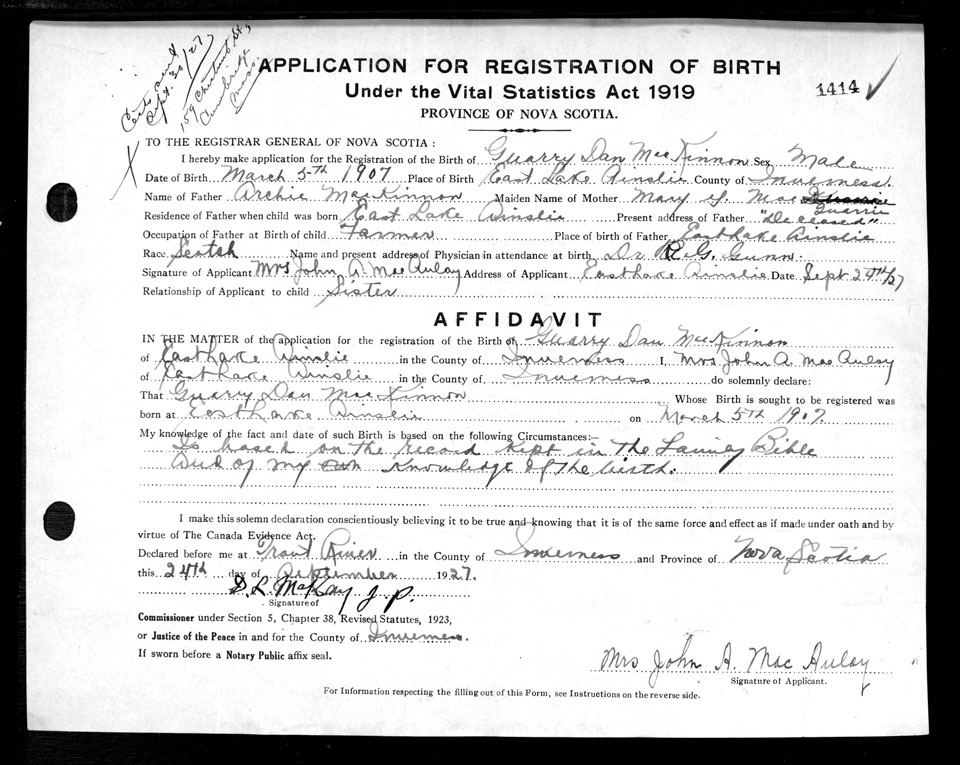 Certs sent
Sept. 30/27,
159 Chestnut St.,
Cambridge
Mass
APPLICATION FOR REGISTRATION OF BIRTH
1414 ✓
Under the Vital Statistics Act 1919
PROVINCE OF NOVA SCOTIA.
X
TO THE REGISTRAR GENERAL OF NOVA SCOTIA :
I hereby make application for the Registration of the Birth of Guarry Dan MacKinnon Sex Male
Date of Birth March 5th 1907 Place of Birth East Lake Ainslie County of Inverness.
Name of Father Archie MacKinnon Maiden Name of Mother Mary Y. Mac
Guarrie
Residence of Father when child was born East Lake Ainslie Present address of Father "Deceased"
Occupation of Father at Birth of child Farmer Place of birth of Father East Lake Ainslie
Race Scotch Name and present address of Physician in attendance at birth Dr. R. G. Gunn.
Signature of Applicant Mrs John A. MacAulay Address of Applicant East Lake Ainslie Date Sept 24th/27
Relationship of Applicant to child Sister
AFFIDAVIT
IN THE MATTER of the application for the registration of the Birth of Guarry Dan MacKinnon
of East Lake Ainslie in the County of Inverness I, Mrs John A. MacAulay
of East Lake Ainslie in the County of Inverness do solemnly declare:
That Guarry Dan MacKinnon Whose Birth is sought to be registered was
born at East Lake Ainslie on March 5th 1907.
My knowledge of the fact and date of such Birth is based on the following Circumstances:—
Is based on the record kept in the Family Bible
and of my own knowledge of the birth.
I make this solemn declaration conscientiously believing it to be true and knowing that it is of the same force and effect as if made under oath and by
virtue of The Canada Evidence Act.
Declared before me at Trout River in the County of Inverness and Province of Nova Scotia
this 24th day of September 1927.
D. L. McKay J. P.
Signature of
Commissioner under Section 5, Chapter 38, Revised Statutes, 1923,
or Justice of the Peace in and for the County of Inverness.
If sworn before a Notary Public affix seal.
Mrs John A. MacAulay
Signature of Applicant.
For Information respecting the filling out of this Form, see Instructions on the reverse side.